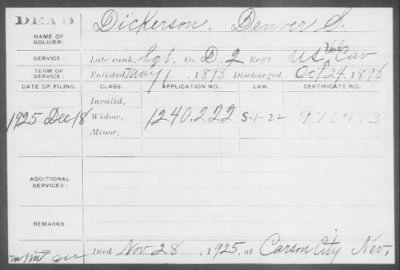 DEAD
Dickerson. Denver S.
NAME OF SOLDIER:
SERVICE: Late rank, Sgt. Co. D. 2 Reg't US Vol Cav
TERM OF SERVICE: Enlisted May 1, 1898 Discharged Oct 24, 1898
DATE OF FILING. CLASS. APPLICATION NO. LAW. CERTIFICATE NO.
Invalid,
1925 Dec 18 Widow, 1240.222 S-1-22 970473
Minor,
ADDITIONAL SERVICES:
REMARKS:
Died Nov. 28, 1925, at Carson City Nev.